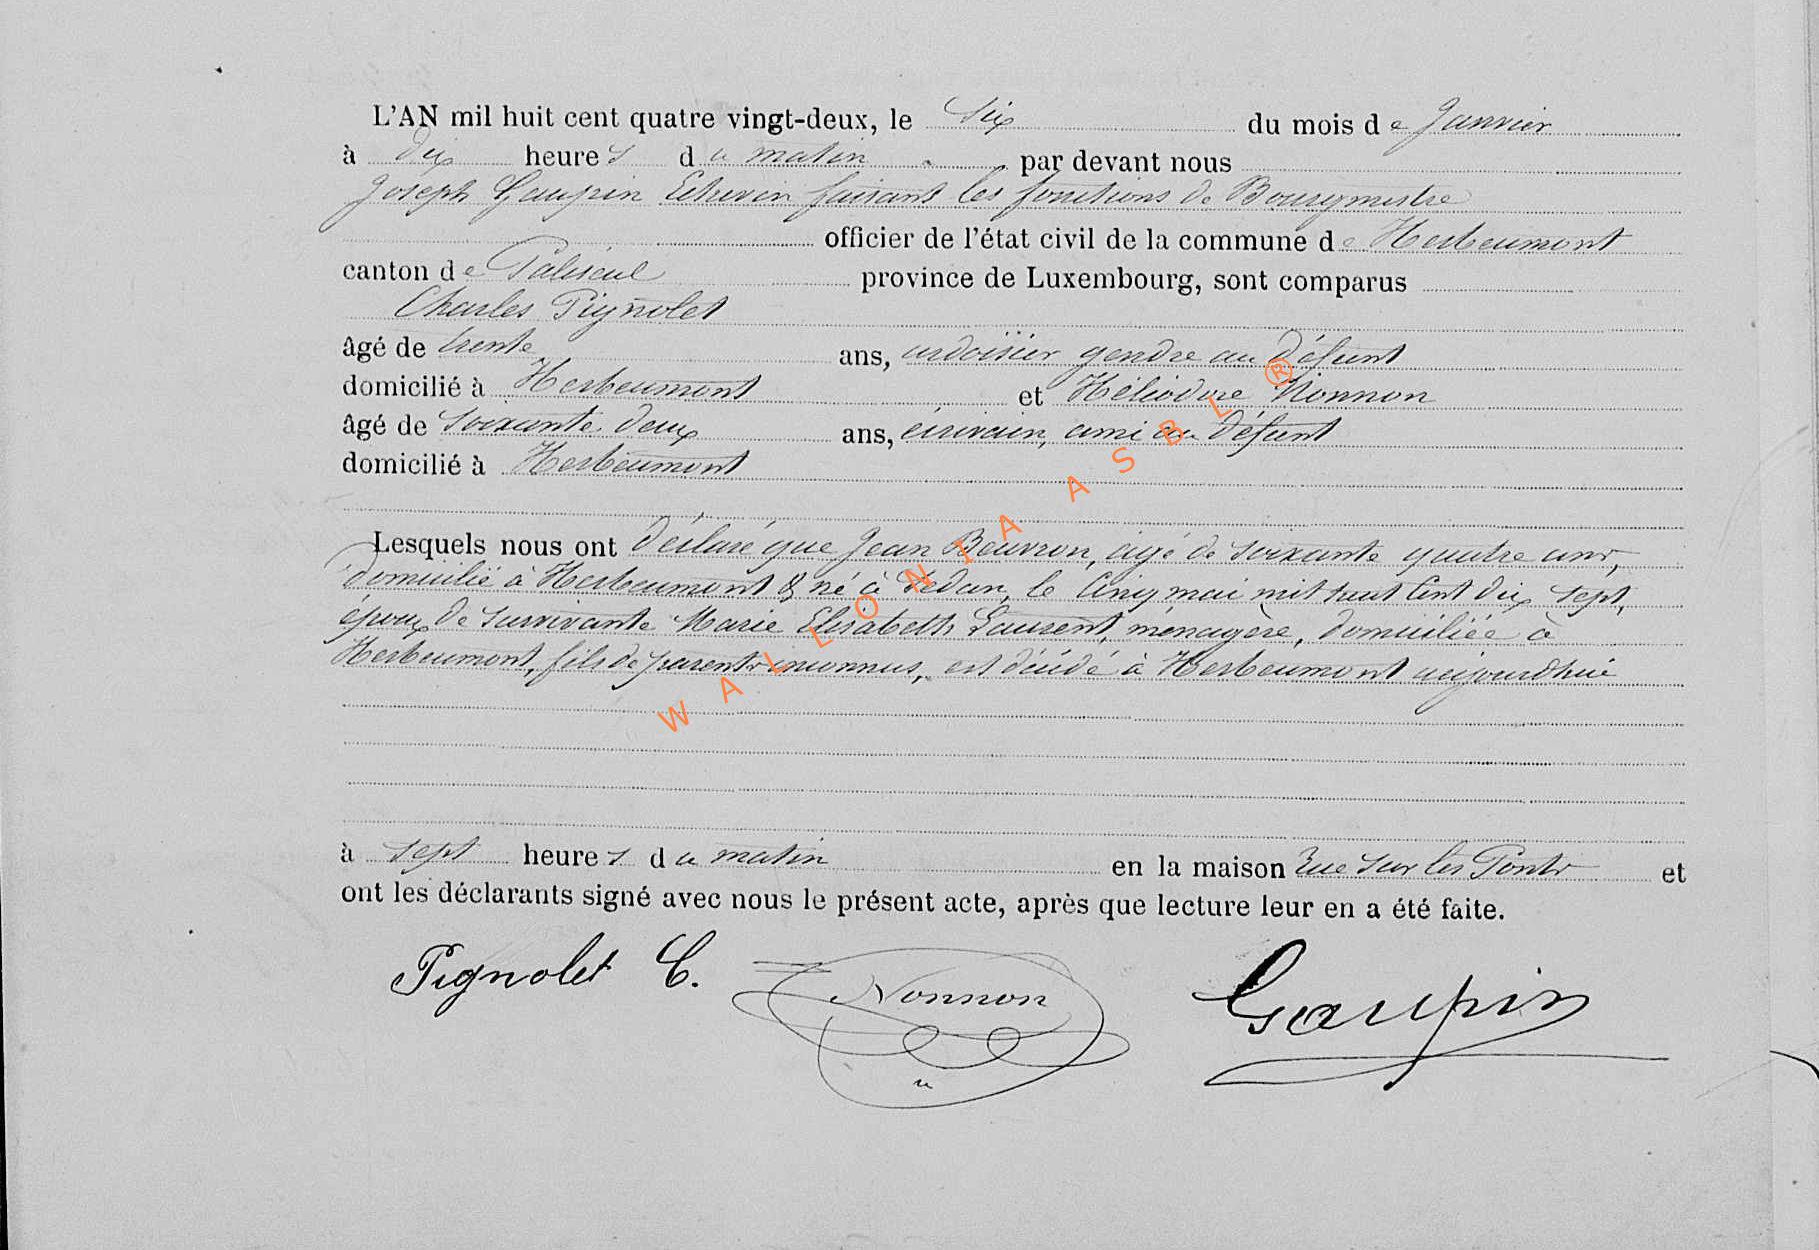 L'AN mil huit cent quatre vingt-deux, le Six du mois de Janvier
à dix heures du matin par devant nous
Joseph Gaupin Echevin faisant les fonctions de Bourgmestre
officier de l'état civil de la commune de Herbeumont
canton de Paliseul province de Luxembourg, sont comparus
Charles Pignolet
âgé de trente ans, ardoisier gendre au défunt
domicilié à Herbeumont et Héliodore Nonnon
âgé de soixante deux ans, écrivain, ami au défunt
domicilié à Herbeumont
Lesquels nous ont déclaré que Jean Beuvron, âgé de soixante quatre ans,
domicilié à Herbeumont & né à Sedan, le Cinq mai mil huit Cent dix sept,
époux de survivante Marie Elisabeth Laurent, ménagère, domiciliée à
Herbeumont, fils de parents inconnus, est décédé à Herbeumont aujourd'hui
à sept heures du matin en la maison Rue sur les Ponts et
ont les déclarants signé avec nous le présent acte, après que lecture leur en a été faite.
Pignolet C. Nonnon Gaupin
WALLONIA ASBL ®